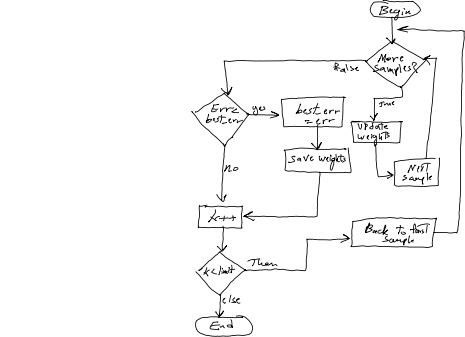 Begin
More
samples?
False
True
Update
weights
Next
sample
Err<
best err
yes
best.err
= err
save weights
no
k++
Back to first
sample
k<limit
Then
else
End